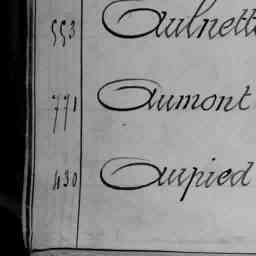 553 Aulnette
771 Aumont
430 Aupied